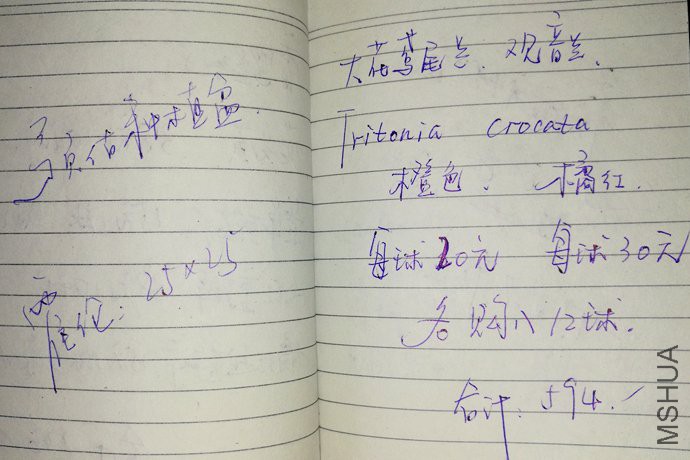 预估种植盆
25×25
大花鸢尾兰、观音兰、
Tritonia crocata
橙色、橘红、
每球20元 每球30元
各购入12球.
合计: 594.
MSHUA